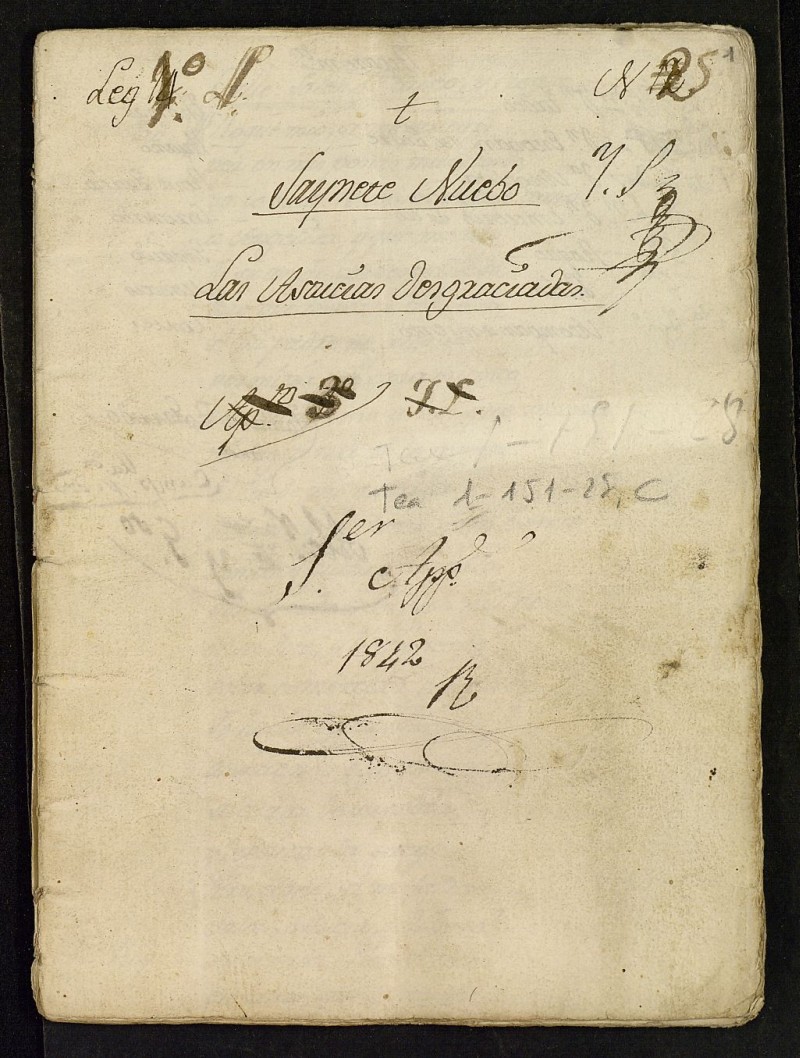 Leg 7.º L.
N 25 1
t
Saynete Nuebo
Y. S
Las Astucias Desgraciadas.
Ap.to 3º J.L.
Tea 1-151-25, C
S.er App.do
1842
R